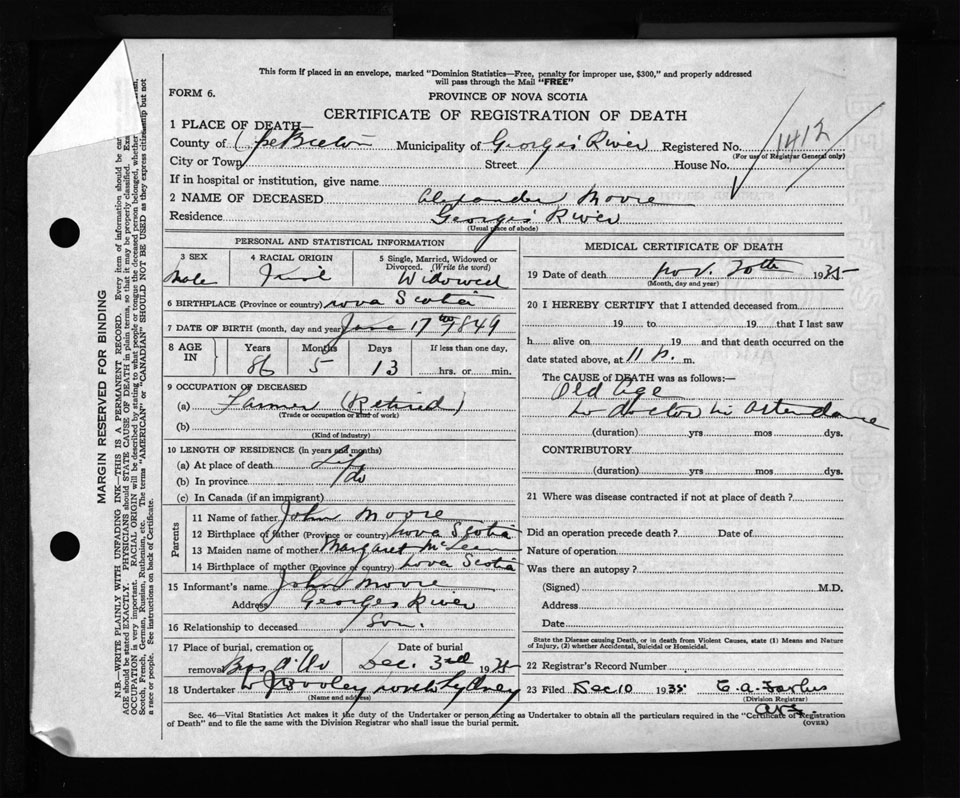 This form if placed in an envelope, marked "Dominion Statistics—Free, penalty for improper use, $300," and properly addressed
will pass through the Mail "FREE"
FORM 6.
PROVINCE OF NOVA SCOTIA
CERTIFICATE OF REGISTRATION OF DEATH
1 PLACE OF DEATH—
County of Cape Breton Municipality of Georges River Registered No. 1412
(For use of Registrar General only)
City or Town Street House No.
If in hospital or institution, give name
2 NAME OF DECEASED Alexander Moore
Residence Georges River
(Usual place of abode)
PERSONAL AND STATISTICAL INFORMATION
3 SEX 4 RACIAL ORIGIN 5 Single, Married, Widowed or
Divorced. (Write the word)
Male Widowed
6 BIRTHPLACE (Province or country) Nova Scotia
7 DATE OF BIRTH (month, day and year) June 17 1849
8 AGE IN Years Months Days If less than one day,
86 5 13 hrs. or min.
9 OCCUPATION OF DECEASED
(a) Farmer (Retired)
(Trade or occupation or kind of work)
(b)
(Kind of industry)
10 LENGTH OF RESIDENCE (in years and months)
(a) At place of death Life
(b) In province do
(c) In Canada (if an immigrant)
Parents
11 Name of father John Moore
12 Birthplace of father (Province or country) Nova Scotia
13 Maiden name of mother Margaret
14 Birthplace of mother (Province or country) Nova Scotia
15 Informant's name John Moore
Address Georges River
16 Relationship to deceased Son.
17 Place of burial, cremation or Date of burial
removal Bras d'Or Dec. 3rd 1935
18 Undertaker North Sydney
(Name and address)
MEDICAL CERTIFICATE OF DEATH
19 Date of death Nov. 30th 1935
(Month, day and year)
20 I HEREBY CERTIFY that I attended deceased from
19 to 19 that I last saw
h alive on 19 and that death occurred on the
date stated above, at 11 p. m.
The CAUSE of DEATH was as follows:—
Old Age
No doctor in attendance
(duration) yrs mos dys.
CONTRIBUTORY
(duration) yrs mos dys.
21 Where was disease contracted if not at place of death?
Did an operation precede death? Date of
Nature of operation
Was there an autopsy?
(Signed) M.D.
Address
Date
State the Disease causing Death, or in death from Violent Causes, state (1) Means and Nature
of Injury, (2) whether Accidental, Suicidal or Homicidal.
22 Registrar's Record Number
23 Filed Dec 10 1935 E. A.
(Division Registrar)
Sec. 46—Vital Statistics Act makes it the duty of the Undertaker or person acting as Undertaker to obtain all the particulars required in the "Certificate of Registration
of Death" and to file the same with the Division Registrar who shall issue the burial permit. (OVER)
MARGIN RESERVED FOR BINDING
N.B.—WRITE PLAINLY WITH UNFADING INK—THIS IS A PERMANENT RECORD. Every item of information should be
AGE should be stated EXACTLY. PHYSICIANS should STATE CAUSE OF DEATH in plain terms, so that it may be properly classified.
OCCUPATION is very important. RACIAL ORIGIN will be described by stating to what people or tongue the deceased person belonged, whether
Scotch, French, German, Russian, Ruthenian, etc. The terms "AMERICAN" or "CANADIAN" SHOULD NOT BE USED as they express citizenship but not
a race or people. See instructions on back of Certificate.